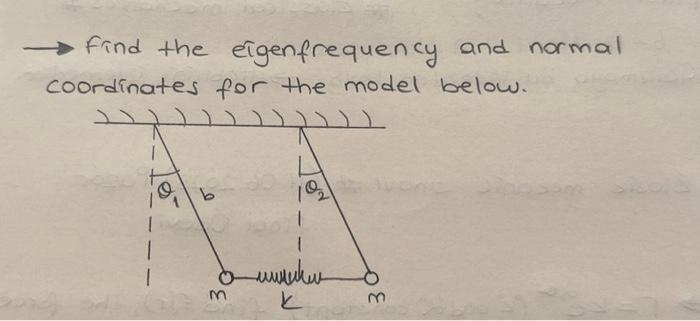 → Find the eigenfrequency and normal
coordinates for the model below.
θ₁ b θ₂
m k m